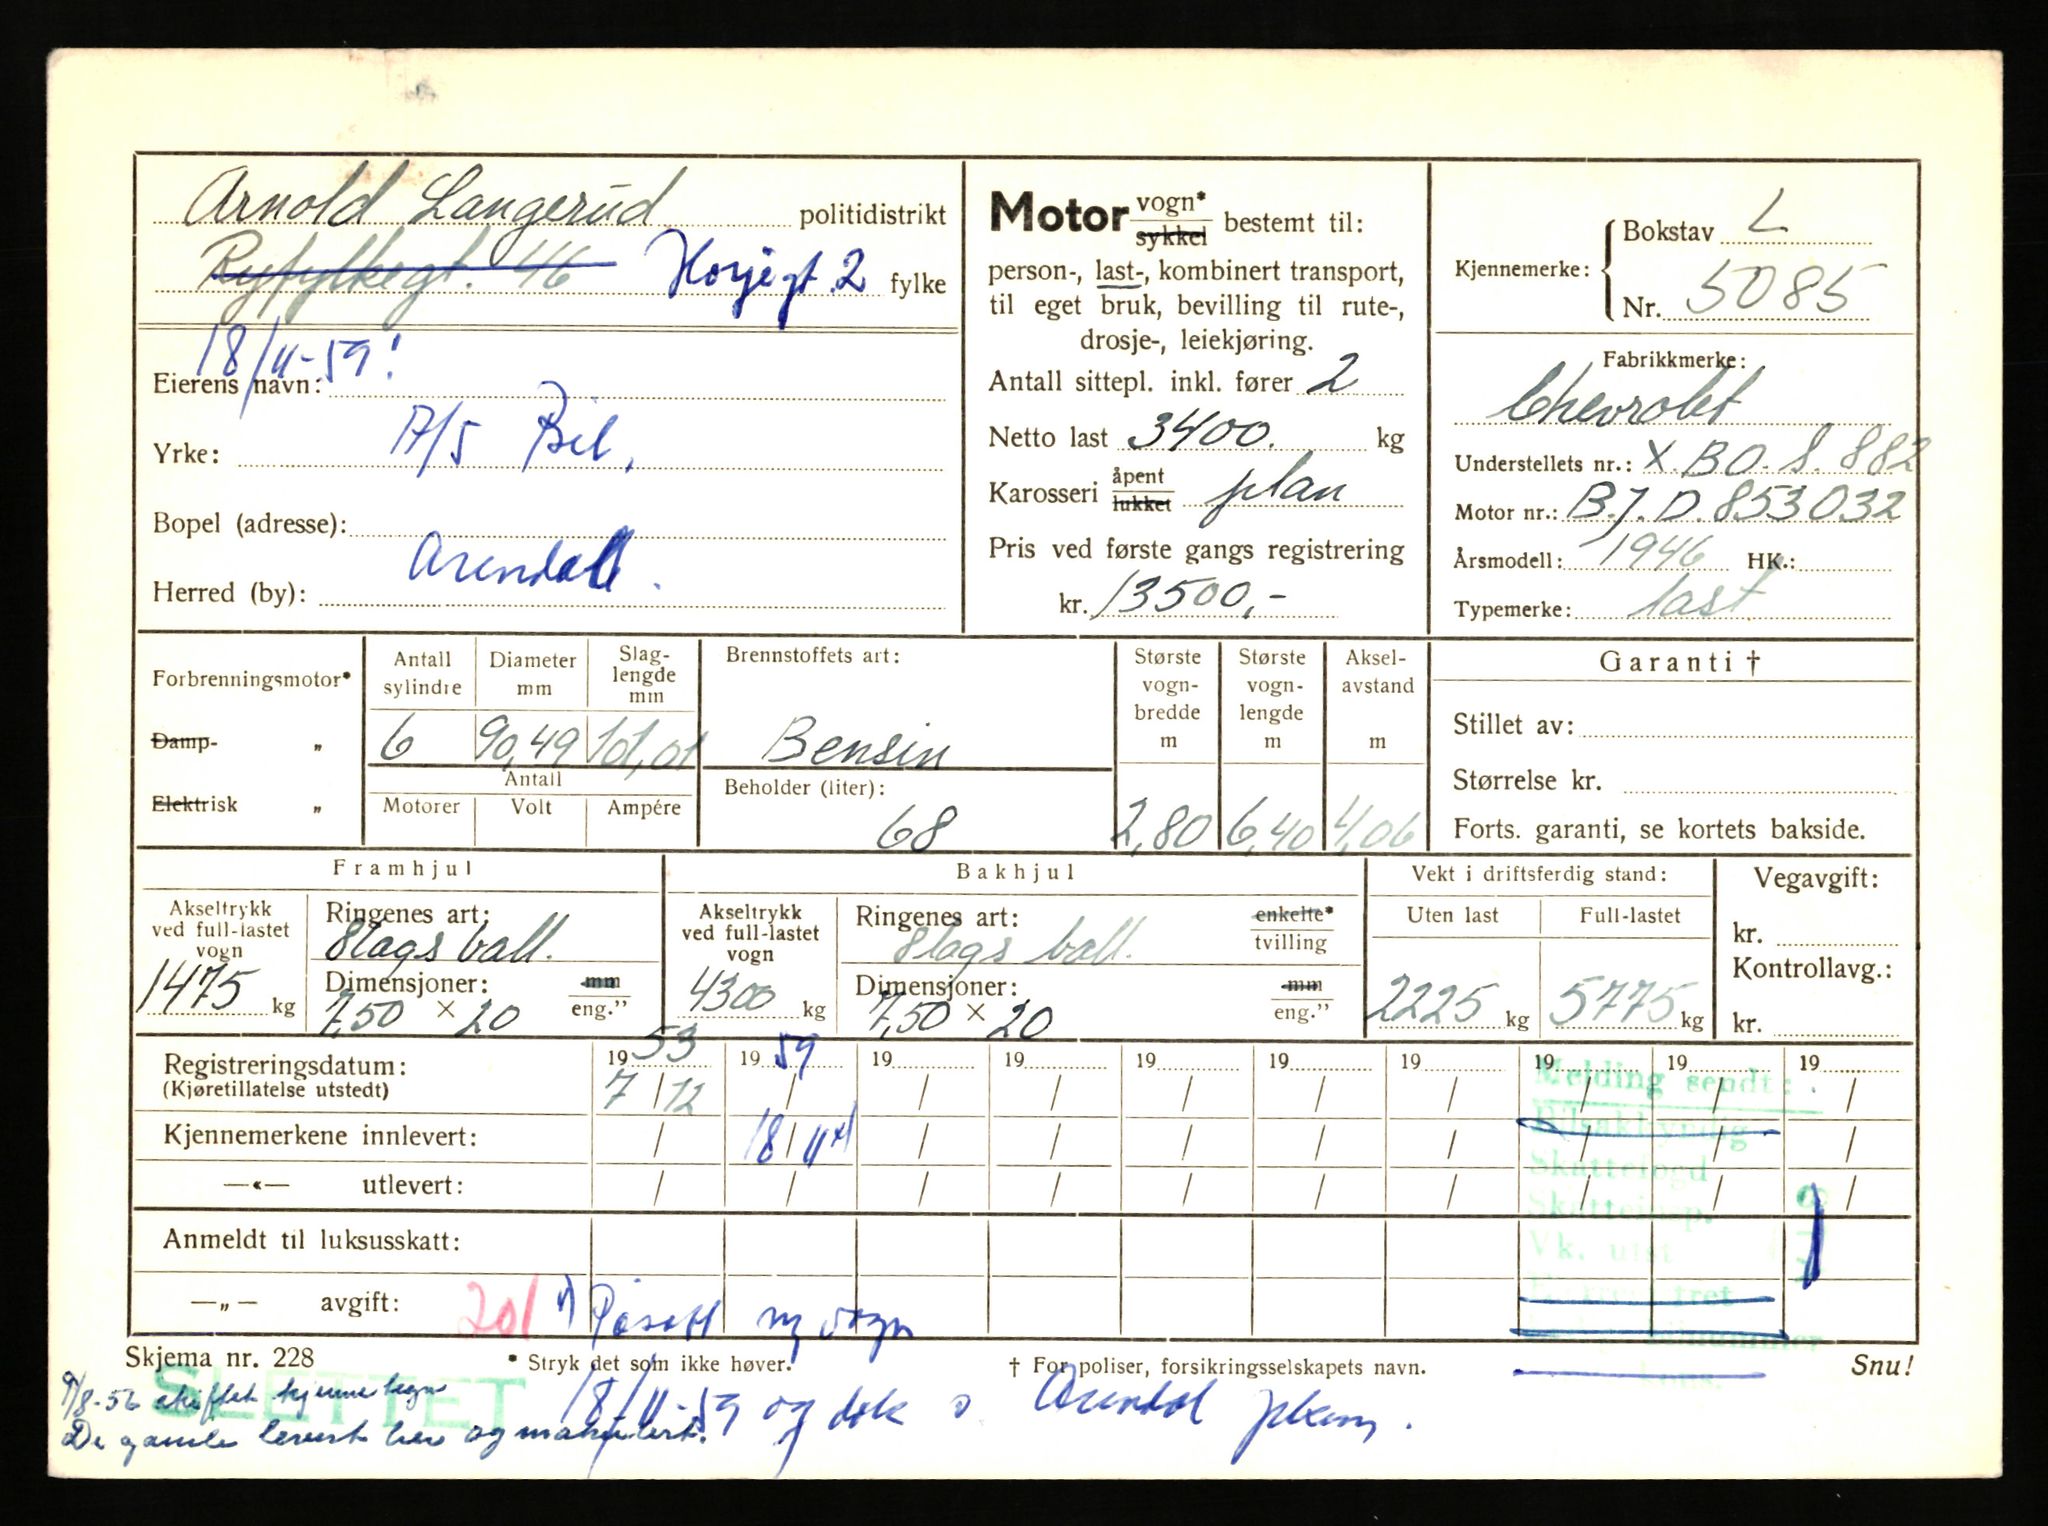 Arnold Langerud politidistrikt
Ryfylkegt. 46 Horjegt. 2 fylke
18/11-59!
Eierens navn:
A/S Bil,
Yrke:
Bopel (adresse):
Arendal.
Herred (by):
Motor vogn* sykkel bestemt til:
person-, last-, kombinert transport,
til eget bruk, bevilling til rute-,
drosje-, leiekjøring.
Antall sittepl. inkl. fører 2
Netto last 3400. kg
Karosseri åpent lukket plan
Pris ved første gangs registrering
kr. 13500,-
Kjennemerke: Bokstav L
Nr. 5085
Fabrikkmerke:
Chevrolet
Understellets nr.: X.B.O.S.882
Motor nr.: B.J.D.853032
Årsmodell: 1946 HK.:
Typemerke: last
Forbrenningsmotor*
Damp- „
Elektrisk „
Antall sylindre Diameter mm Slaglengde mm
6 90,49 101,01
Antall
Motorer Volt Ampére
Brennstoffets art:
Bensin
Beholder (liter):
68
Største vognbredde m Største vognlengde m Akselavstand m
2,80 6,40 4,06
Garanti †
Stillet av:
Størrelse kr.
Forts. garanti, se kortets bakside.
Framhjul
Akseltrykk ved full-lastet vogn
1475 kg
Ringenes art:
Slags ball.
Dimensjoner: mm eng."
7,50 × 20
Bakhjul
Akseltrykk ved full-lastet vogn
4300 kg
Ringenes art: enkelte* tvilling
Slags ball.
Dimensjoner: mm eng."
7,50 × 20
Vekt i driftsferdig stand:
Uten last Full-lastet
2225 kg 5775 kg
Vegavgift:
kr.
Kontrollavg.:
kr.
Registreringsdatum: 1953 1959 19 19 19 19 19 19 19 19
(Kjøretillatelse utstedt) 7/12 / / / / / / / / /
Kjennemerkene innlevert: / 18/11 x) / / / / / / / /
—«— utlevert: / / / / / / / / / /
Melding sendt:
Skattefogd
Skatteinsp.
Vk. utst
Anmeldt til luksusskatt:
—„— avgift: 201 x) Påsatt ny vogn
Skjema nr. 228 * Stryk det som ikke høver. † For poliser, forsikringsselskapets navn. Snu!
SLETTET
18/11-59 og dek Arendal
9/8-56 skiftet kjennetegn
De gamle levert her og makulert.